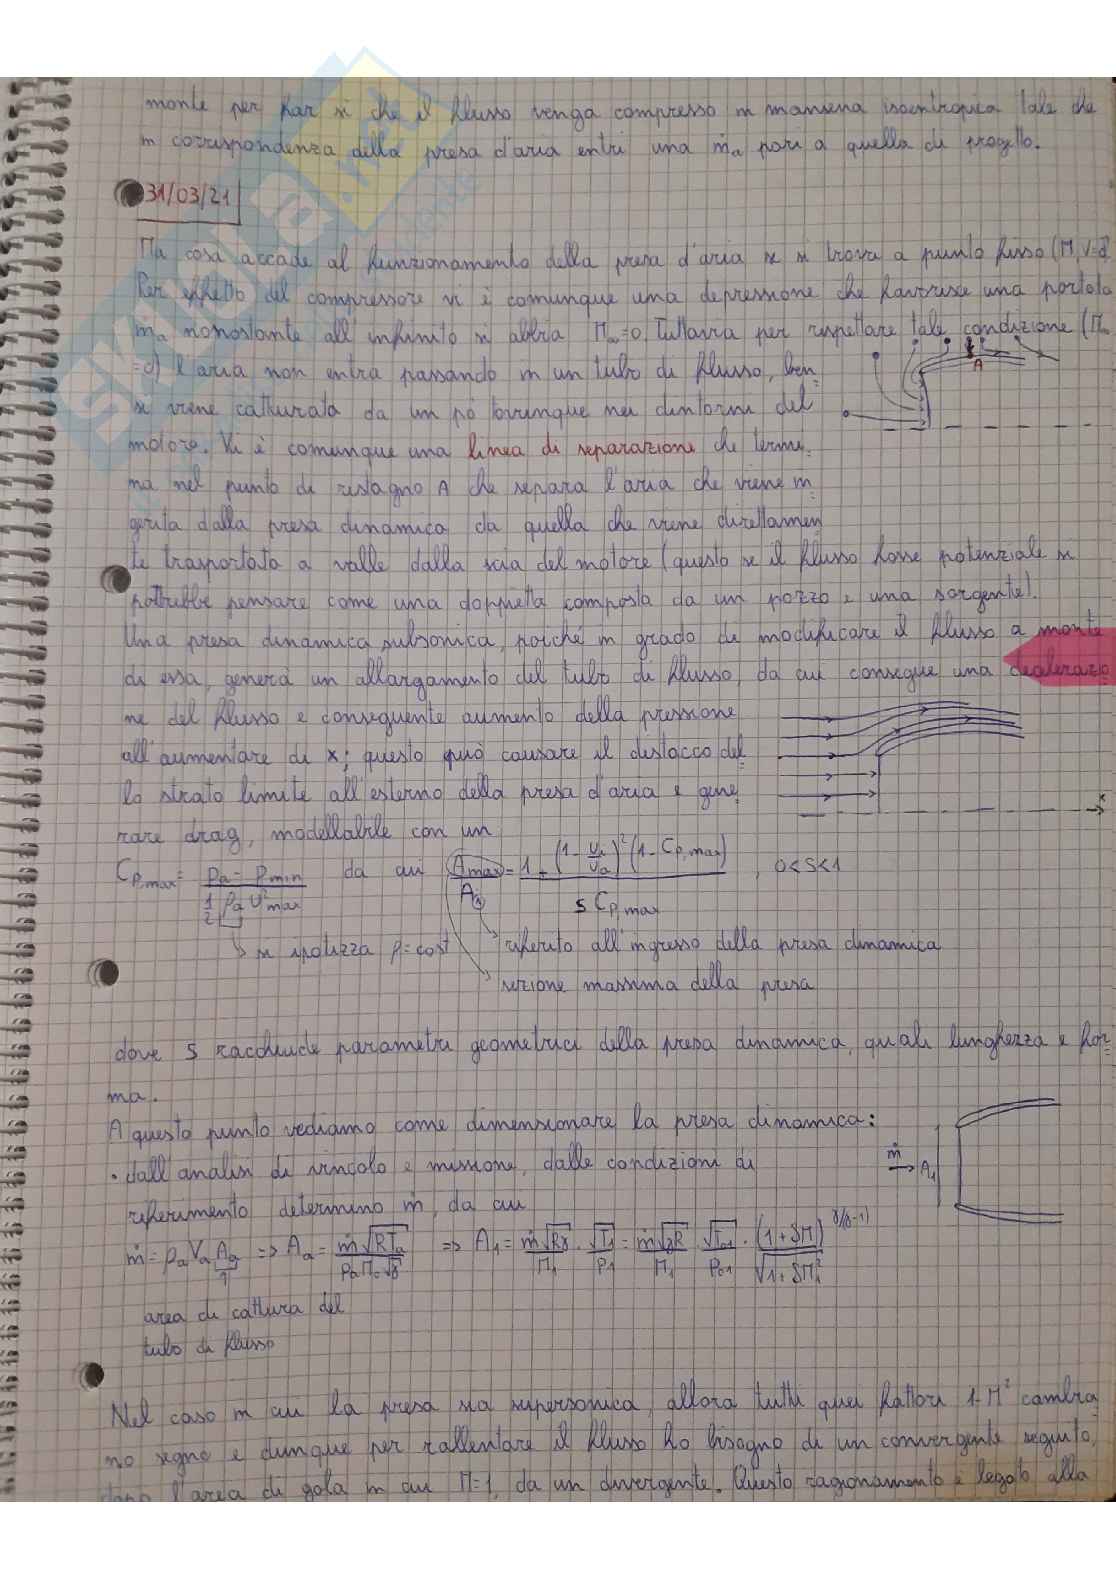 monte per far sì che il flusso venga compresso in maniera isoentropica tale che
in corrispondenza della presa d'aria entri una ṁa pari a quella di progetto.
31/03/21
Ma cosa accade al funzionamento della presa d'aria se si trova a punto fisso (M, V=0)
Per effetto del compressore vi è comunque una depressione che favorisce una portata
ṁa nonostante all'infinito si abbia M∞=0. Tuttavia per rispettare tale condizione (M∞
=0) l'aria non entra passando in un tubo di flusso, ben-
sì viene catturata da un pò ovunque nei dintorni del
motore. Vi è comunque una linea di separazione che termi-
na nel punto di ristagno A che separa l'aria che viene in-
gerita dalla presa dinamica da quella che viene direttamen
te trasportata a valle dalla scia del motore (questo se il flusso fosse potenziale si
potrebbe pensare come una doppietta composta da un pozzo e una sorgente).
Una presa dinamica subsonica, poiché in grado di modificare il flusso a monte
di essa, genera un allargamento del tubo di flusso, da cui consegue una decelerazio
ne del flusso e conseguente aumento della pressione
all'aumentare di x; questo può causare il distacco del-
lo strato limite all'esterno della presa d'aria e gene-
rare drag, modellabile con un
Cp,max = (pa - pmin) / (1/2 ρa v²max) da cui Amax/Ai = 1 + (1 - vi/va)² (1 - Cp,max) / (s Cp,max), 0<s<1
si ipotizza ρ=cost riferito all'ingresso della presa dinamica
sezione massima della presa
dove s racchiude parametri geometrici della presa dinamica, quali lunghezza e for-
ma.
A questo punto vediamo come dimensionare la presa dinamica:
• dall'analisi di vincolo e missione, dalle condizioni di
riferimento determino ṁ, da cui
ṁ = ρa Va Aa => Aa = ṁ√(RTa) / (pa M0 √γ) => A1 = ṁ√(Rγ)/M1 · √T1/p1 = ṁ√(γR)/M1 · √T01/p01 · (1+δM)^(γ/(γ-1)) / √(1+δM1²)
area di cattura del
tubo di flusso
Nel caso in cui la presa sia supersonica, allora tutti quei fattori 1-M² cambia
no segno e dunque per rallentare il flusso ho bisogno di un convergente seguito,
dopo l'area di gola in cui M=1, da un divergente. Questo ragionamento è legato alla
A
x
ṁ
A1